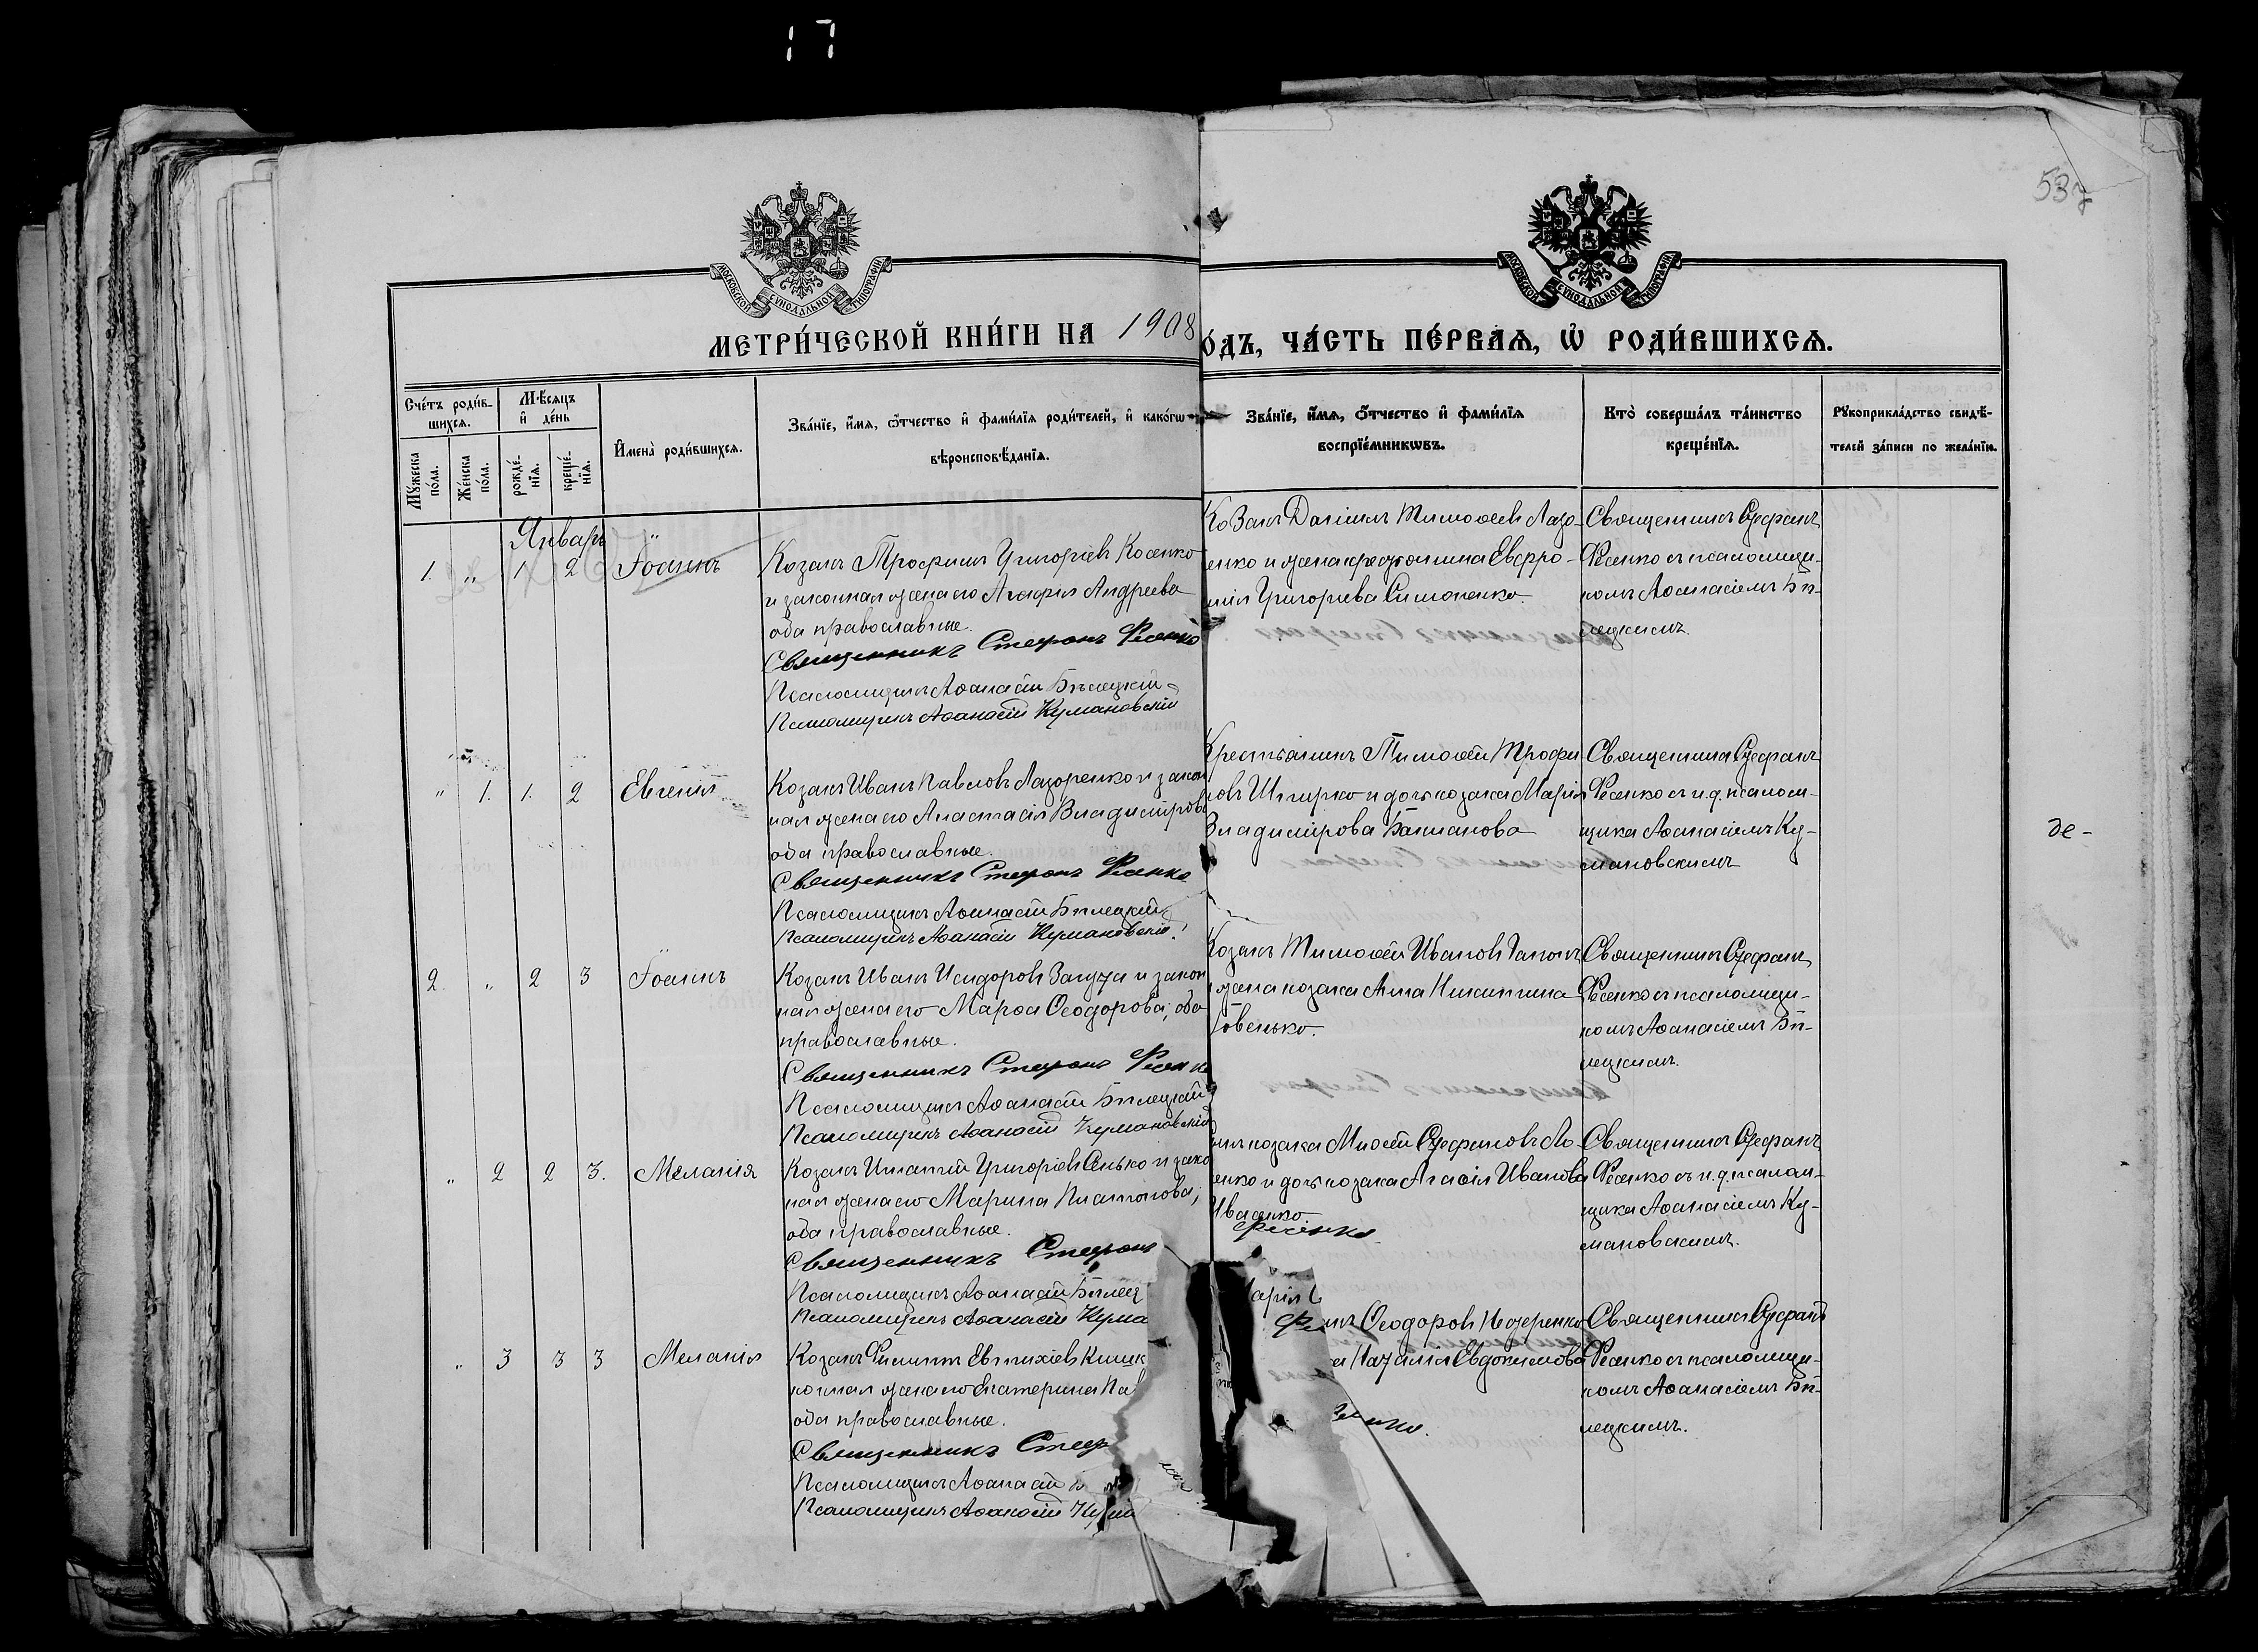 17
537
МОСКОВСКОЙ СѴНОДАЛЬНОЙ ТИПОГРАФІИ
МОСКОВСКОЙ СѴНОДАЛЬНОЙ ТИПОГРАФІИ
МЕТРИ́ЧЕСКОЙ КНИ́ГИ НА 1908
ОДЪ, ЧА́СТЬ ПЕ́РВАѦ, Ѡ҆ РОДИ́ВШИХСѦ.
Сче́тъ роди́в-
шихсѧ.
Мꙋ́жеска по́ла.
Же́нска по́ла.
Мѣ́сяцъ
и҆ де́нь
рожде́-
нїѧ.
креще́-
нїѧ.
И҆мена̀ роди́вшихсѧ.
Зва́нїе, и҆́мѧ, ѻ҆́тчество и҆ фами́лїѧ роди́телей, и҆ како́гѡ
вѣроисповѣ́данїѧ.
Зва́нїе, и҆́мѧ, ѻ҆́тчество и҆ фами́лїѧ
воспрїе́мникѡвъ.
Кто̀ соверша́лъ та́инство
креще́нїѧ.
Рꙋкоприкла́дство свидѣ́-
телей за́писи по жела́нїю.
Январь
1. „ 1 2 Іоаннъ
Козакъ Трофимъ Григоріевъ Косенко
и законная жена его Агафія Андреева
оба православные.
Священникъ Стефанъ Фесенко
Псаломщикъ Аѳанасій Бѣлецкій
Псаломщикъ Аѳанасій Кумановскій
Козакъ Даніилъ Тимоѳеевъ Лазо-
енко и жена крестьянина Евфро-
инія Григорьева Симоненко.
Священникъ Стефанъ
Фесенко съ псаломщи-
комъ Аѳанасіемъ Бѣ-
лецкимъ.
„ 1. 1. 2 Евгенія
Козакъ Иванъ Павловъ Лазоренко и закон
ная жена его Анастасія Владимірова
оба православные.
Священникъ Стефанъ Фесенко
Псаломщикъ Аѳанасій Бѣлецкій
Псаломщикъ Аѳанасій Кумановскій
Крестьянинъ Тимоѳей Трофи
новъ и дочь козака Марія
Владимірова
Священникъ Стефанъ
Фесенко съ и. д. псалом-
щика Аѳанасіемъ Ку-
мановскимъ
де-
2 „ 2 3 Іоаннъ
Козакъ Иванъ Исидоровъ и закон
ная жена его Марѳа Ѳеодорова; оба
православные.
Священникъ Стефанъ Фесенко
Псаломщикъ Аѳанасій Бѣлецкій
Псаломщикъ Аѳанасій Кумановскій
Козакъ Тимоѳей Ивановъ
жена козака Анна Никитина
Священникъ Стефанъ
Фесенко съ псаломщи-
комъ Аѳанасіемъ Бѣ-
лецкимъ.
„ 2 2 3. Меланія
Козакъ Игнатій Григоріевъ Сенько и зако
ная жена его Марина Платонова;
оба православные.
Священникъ Стефанъ
Фесенко
Псаломщикъ Аѳанасій Бѣлец
Псаломщикъ Аѳанасій Кума
козака Стефановъ Ло-
енко и дочь козака Агафія Иванова
Ивасенко
Священникъ Стефанъ
Фесенко съ и. д. псалом-
щика Аѳанасіемъ Ку-
мановскимъ.
„ 3 3 3 Меланія
Козакъ Филиппъ Евтихіевъ
конная жена его Екатерина Пав
оба православные.
Священникъ Стеф
Псаломщикъ Аѳанасій Б
Псаломщикъ Аѳанасій Кума
арія
Ѳеодоровъ Недеренко
Наталія Евдокимова
Священникъ Стефанъ
Фесенко съ псаломщи-
комъ Аѳанасіемъ Бѣ-
лецкимъ.